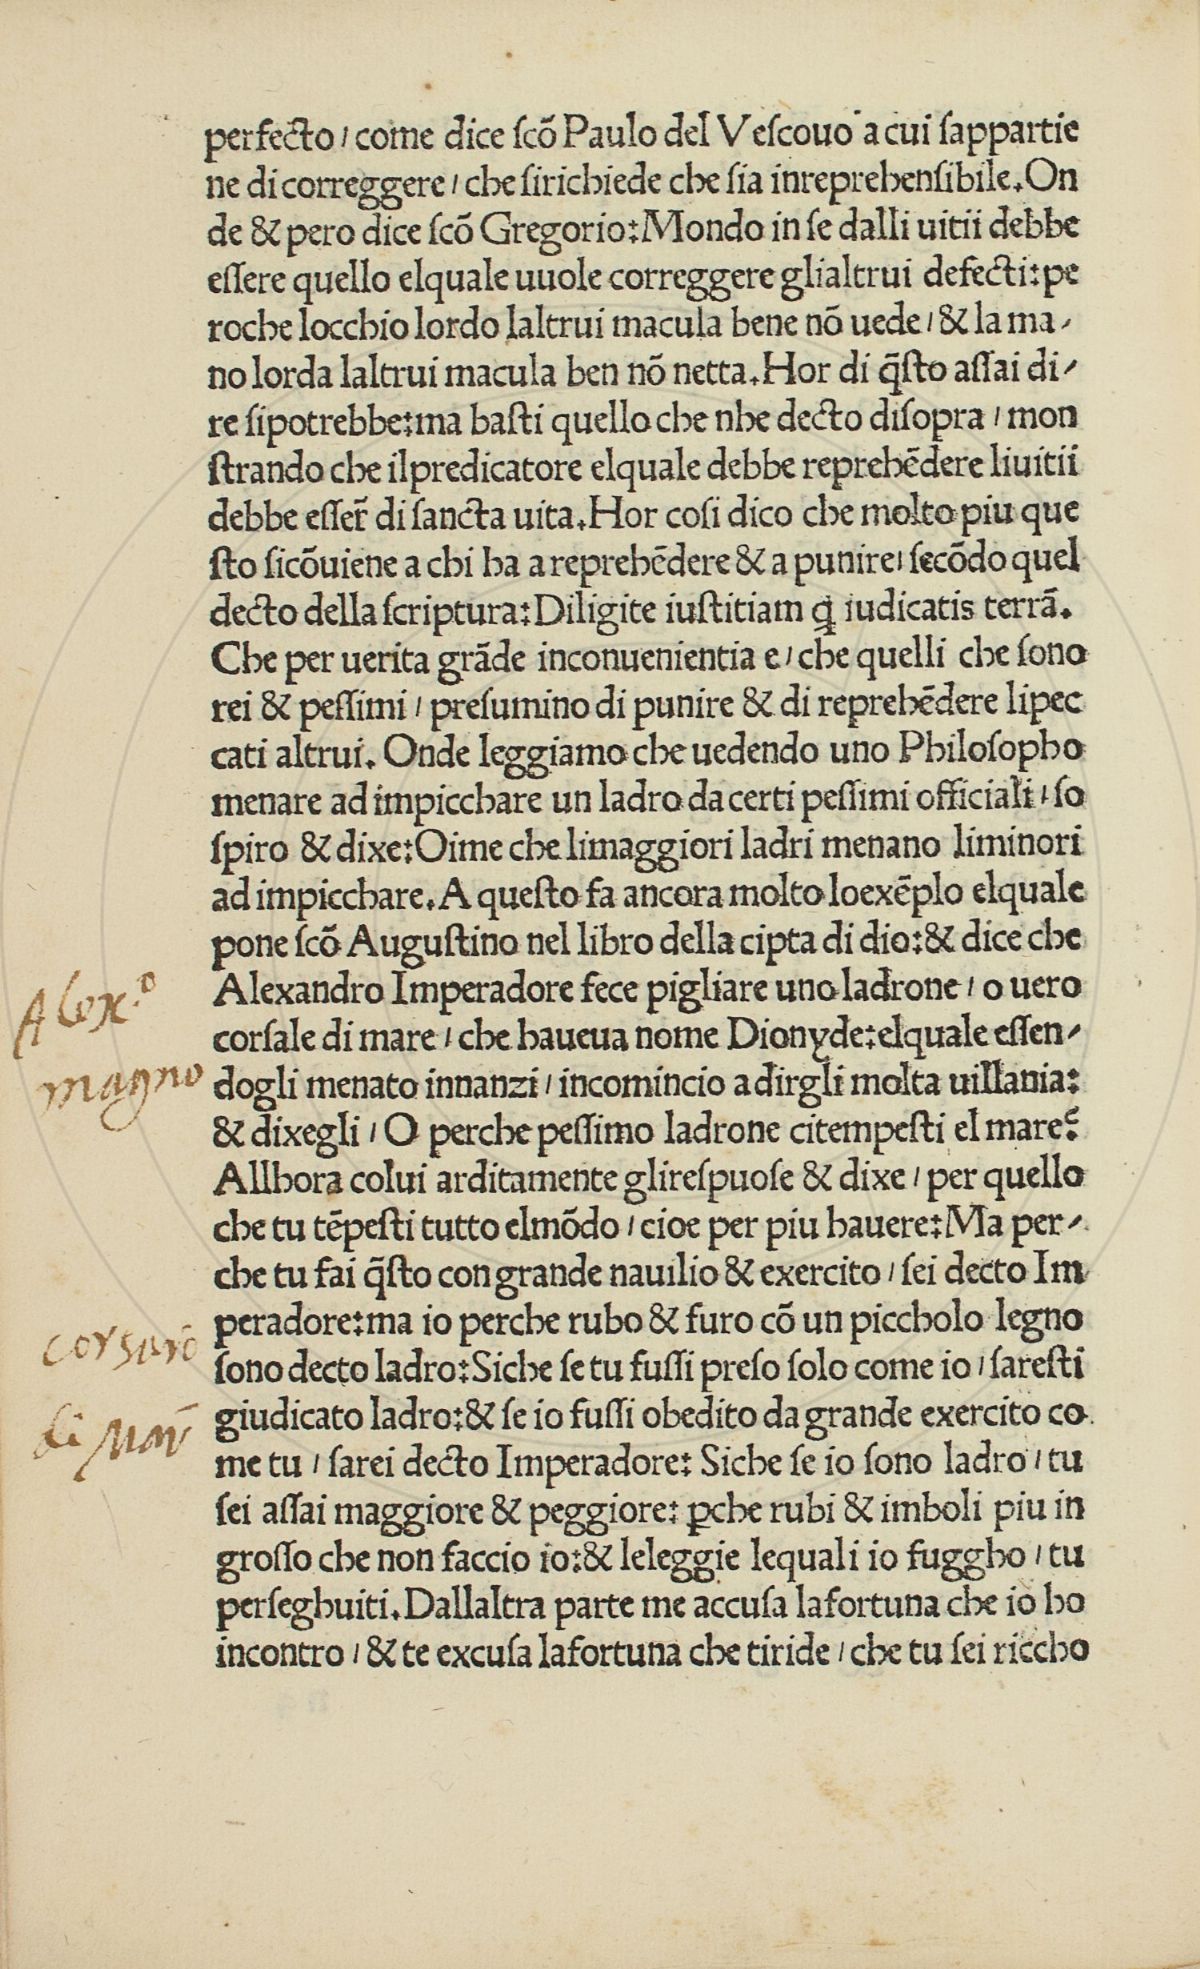 perfecto / come dice scõ Paulo del Vescouo a cui sappartie
ne di correggere / che sirichiede che sia inreprehensibile. On
de & pero dice scõ Gregorio: Mondo in se dalli uitii debbe
essere quello elquale uuole correggere glialtrui defecti: pe
roche locchio lordo laltrui macula bene nõ uede / & la ma-
no lorda laltrui macula ben nõ netta. Hor di q̃sto assai di-
re sipotrebbe: ma basti quello che nhe decto disopra / mon
strando che ilpredicatore elquale debbe reprehẽdere liuitii
debbe esser̃ di sancta uita. Hor cosi dico che molto piu que
sto sicõuiene a chi ha a reprehẽdere & a punire / secõdo quel
decto della scriptura: Diligite iustitiam q̃ iudicatis terrã.
Che per uerita grãde inconuenientia e / che quelli che sono
rei & pessimi / presumino di punire & di reprehẽdere lipec
cati altrui. Onde leggiamo che uedendo uno Philosopho
menare ad impicchare un ladro da certi pessimi officiali / so
spiro & dixe: Oime che limaggiori ladri menano liminori
ad impicchare. A questo fa ancora molto loexẽplo elquale
pone scõ Augustino nel libro della cipta di dio: & dice che
Alexandro Imperadore fece pigliare uno ladrone / o uero
corsale di mare / che haueua nome Dionyde: elquale essen-
dogli menato innanzi / incomincio a dirgli molta uillania:
& dixegli / O perche pessimo ladrone citempesti el mare?
Allhora colui arditamente glirespuose & dixe / per quello
che tu tẽpesti tutto elmõdo / cioe per piu hauere: Ma per-
che tu fai q̃sto con grande nauilio & exercito / sei decto Im
peradore: ma io perche rubo & furo cõ un piccholo legno
sono decto ladro: Siche se tu fussi preso solo come io / saresti
giudicato ladro: & se io fussi obedito da grande exercito co
me tu / sarei decto Imperadore: Siche se io sono ladro / tu
sei assai maggiore & peggiore: ꝑche rubi & imboli piu in
grosso che non faccio io: & leleggie lequali io fuggho / tu
perseghuiti. Dallaltra parte me accusa lafortuna che io ho
incontro / & te excusa lafortuna che tiride / che tu sei riccho
Alex.º
magno
corsaro
di mar̃